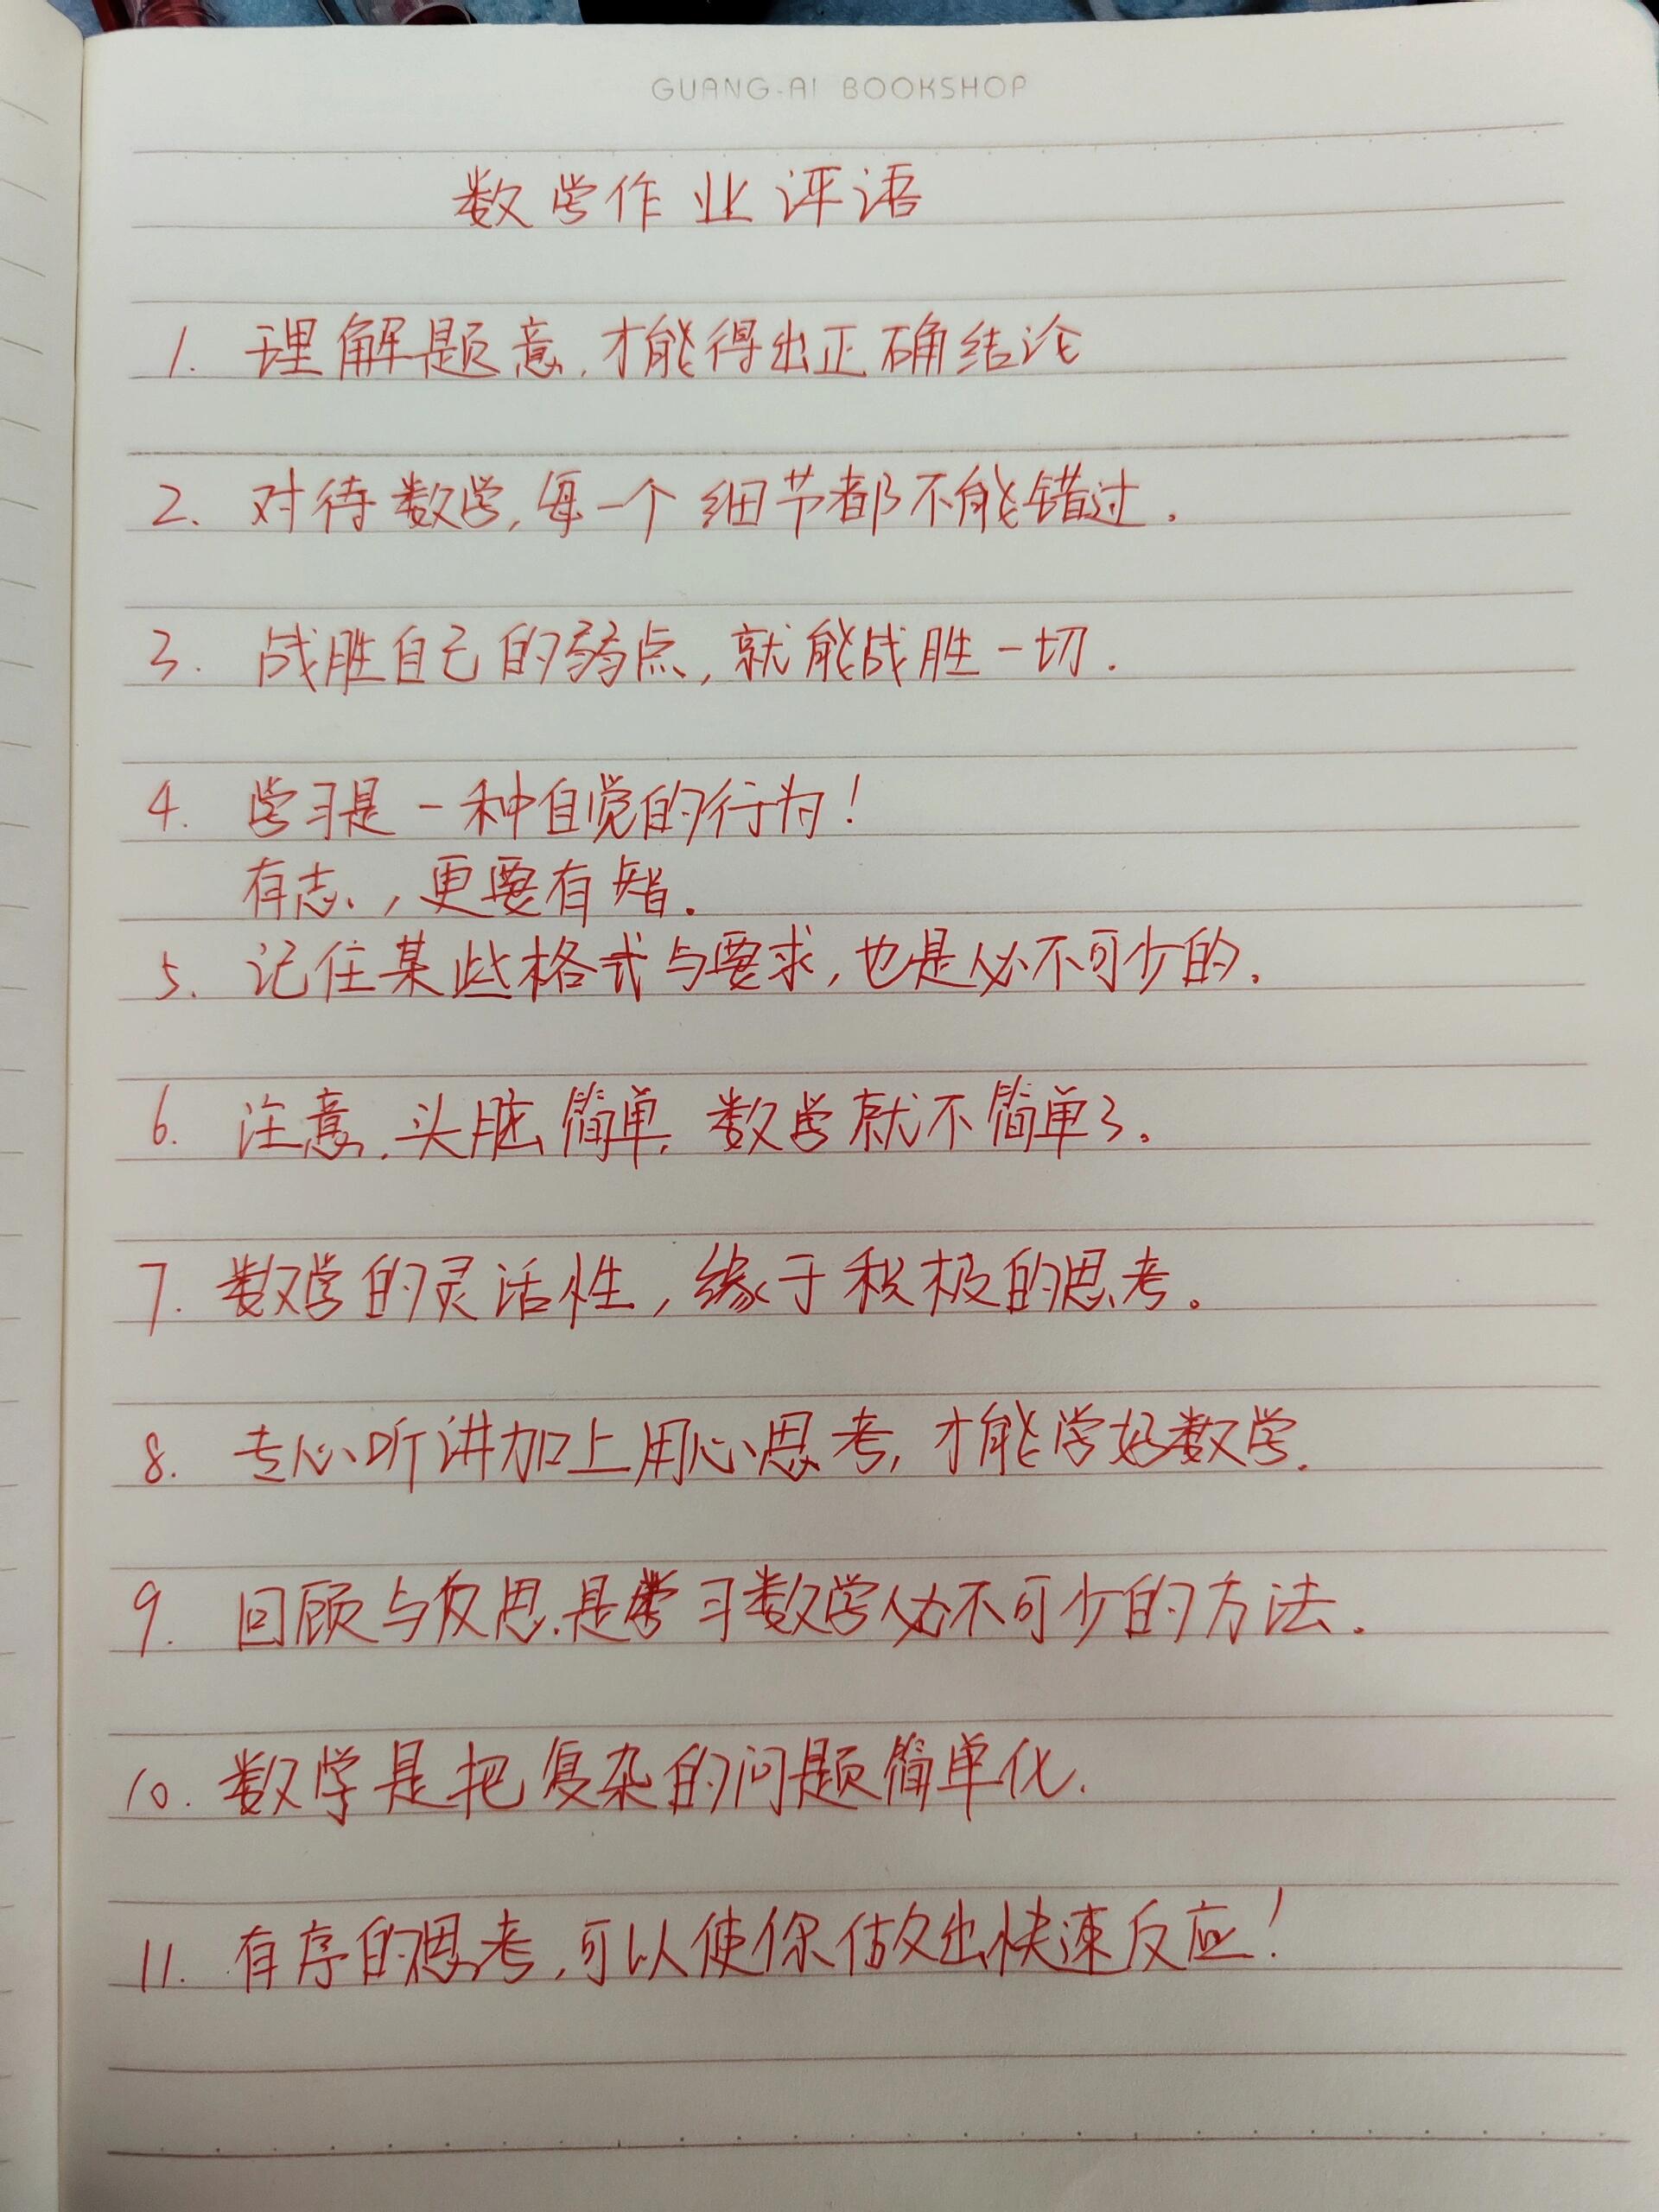 GUANG.AI BOOKSHOP
数学作业评语
1. 理解题意,才能得出正确结论
2. 对待数学,每一个细节都不能错过.
3. 战胜自己的弱点,就能战胜一切.
4. 学习是一种自觉的行为!
有志,更要有智.
5. 记住某些格式与要求,也是必不可少的.
6. 注意,头脑简单,数学就不简单了。
7. 数学的灵活性,缘于积极的思考。
8. 专心听讲加上用心思考,才能学好数学.
9. 回顾与反思.是学习数学必不可少的方法.
10. 数学是把复杂的问题简单化.
11. 有序的思考,可以使你做出快速反应!